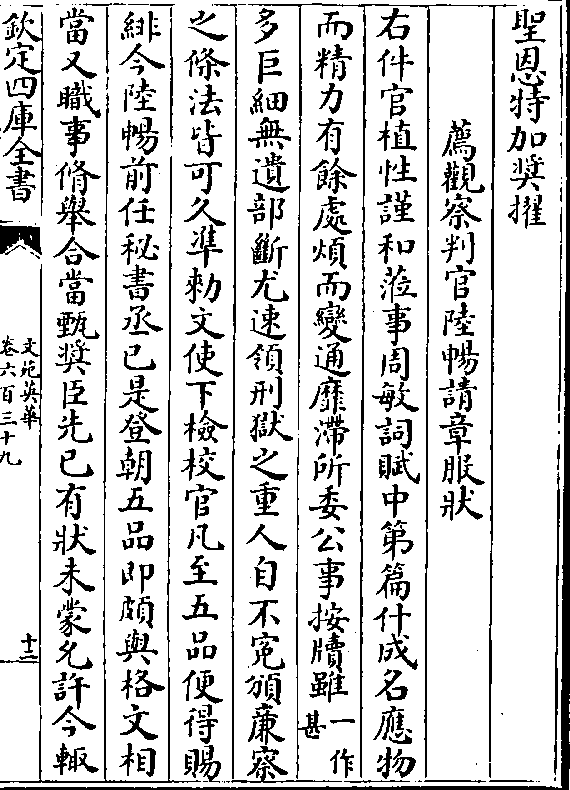 聖恩特加奨擢
薦觀察判官陸暢請章服狀
右件官植性謹和蒞事周敏詞賦中第篇什成名應物
而精力有餘處煩而變通靡滯所委公事按牘雖一作甚
多巨細無遺部斷尤速領刑獄之重人自不寃頒亷察
之條法皆可久凖勅文使下檢校官凡至五品便得賜
緋今陸暢前任秘書丞已是登朝五品即頗與格文相
當又職事脩舉合當甄奨臣先已有狀未蒙允許今輙
欽定四庫全書
文苑英華
卷六百三十九
十二